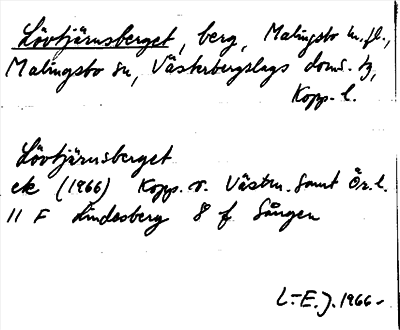 Lövtjärnsberget, berg, Malingsbo m.fl.,
Malingsbo sn, Västerbergslags doms. tg,
Kopp. l.
Lövtjärnsberget
ek (1966) Kopp. o. Västm. samt Ör. l.
11 F Lindesberg 8 f Sången
L.-E.J. 1966